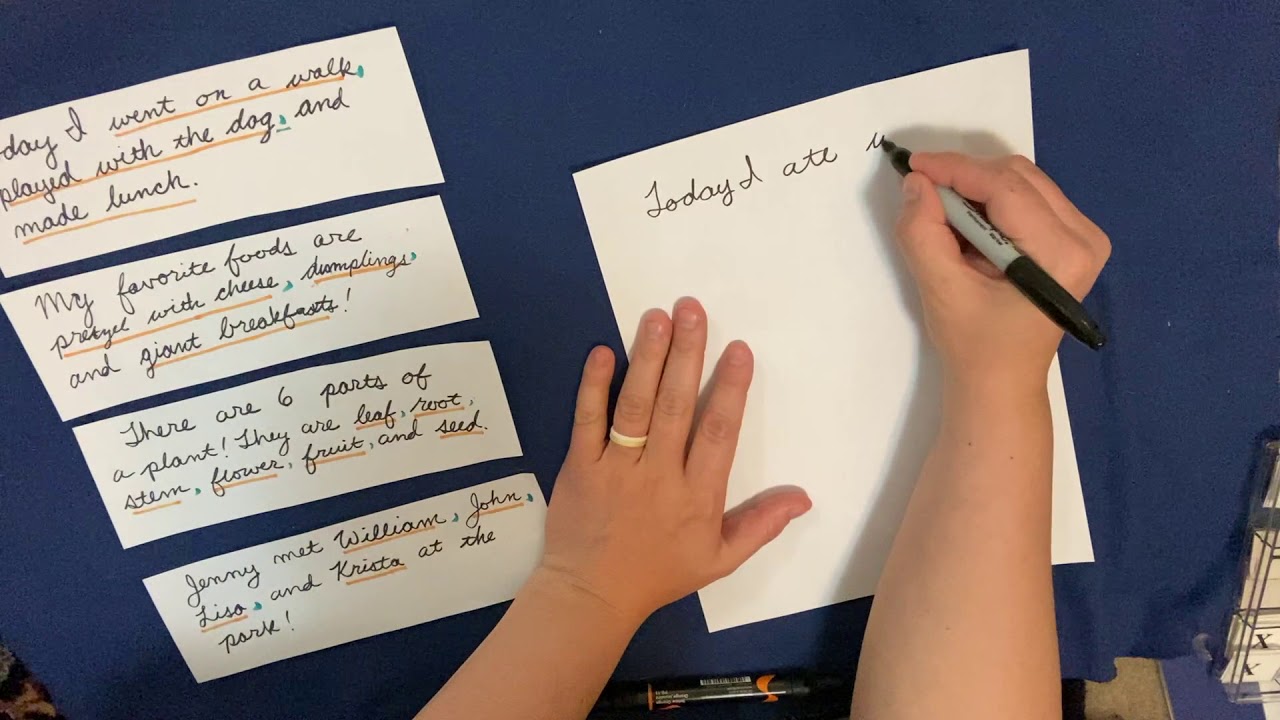 day I went on a walk,
played with the dog, and
made lunch.
My favorite foods are
pretzel with cheese, dumplings,
and giant breakfasts!
There are 6 parts of
a plant! They are leaf, root,
stem, flower, fruit, and seed.
Jenny met William, John,
Lisa, and Krista at the
park!
Today I ate
X
X